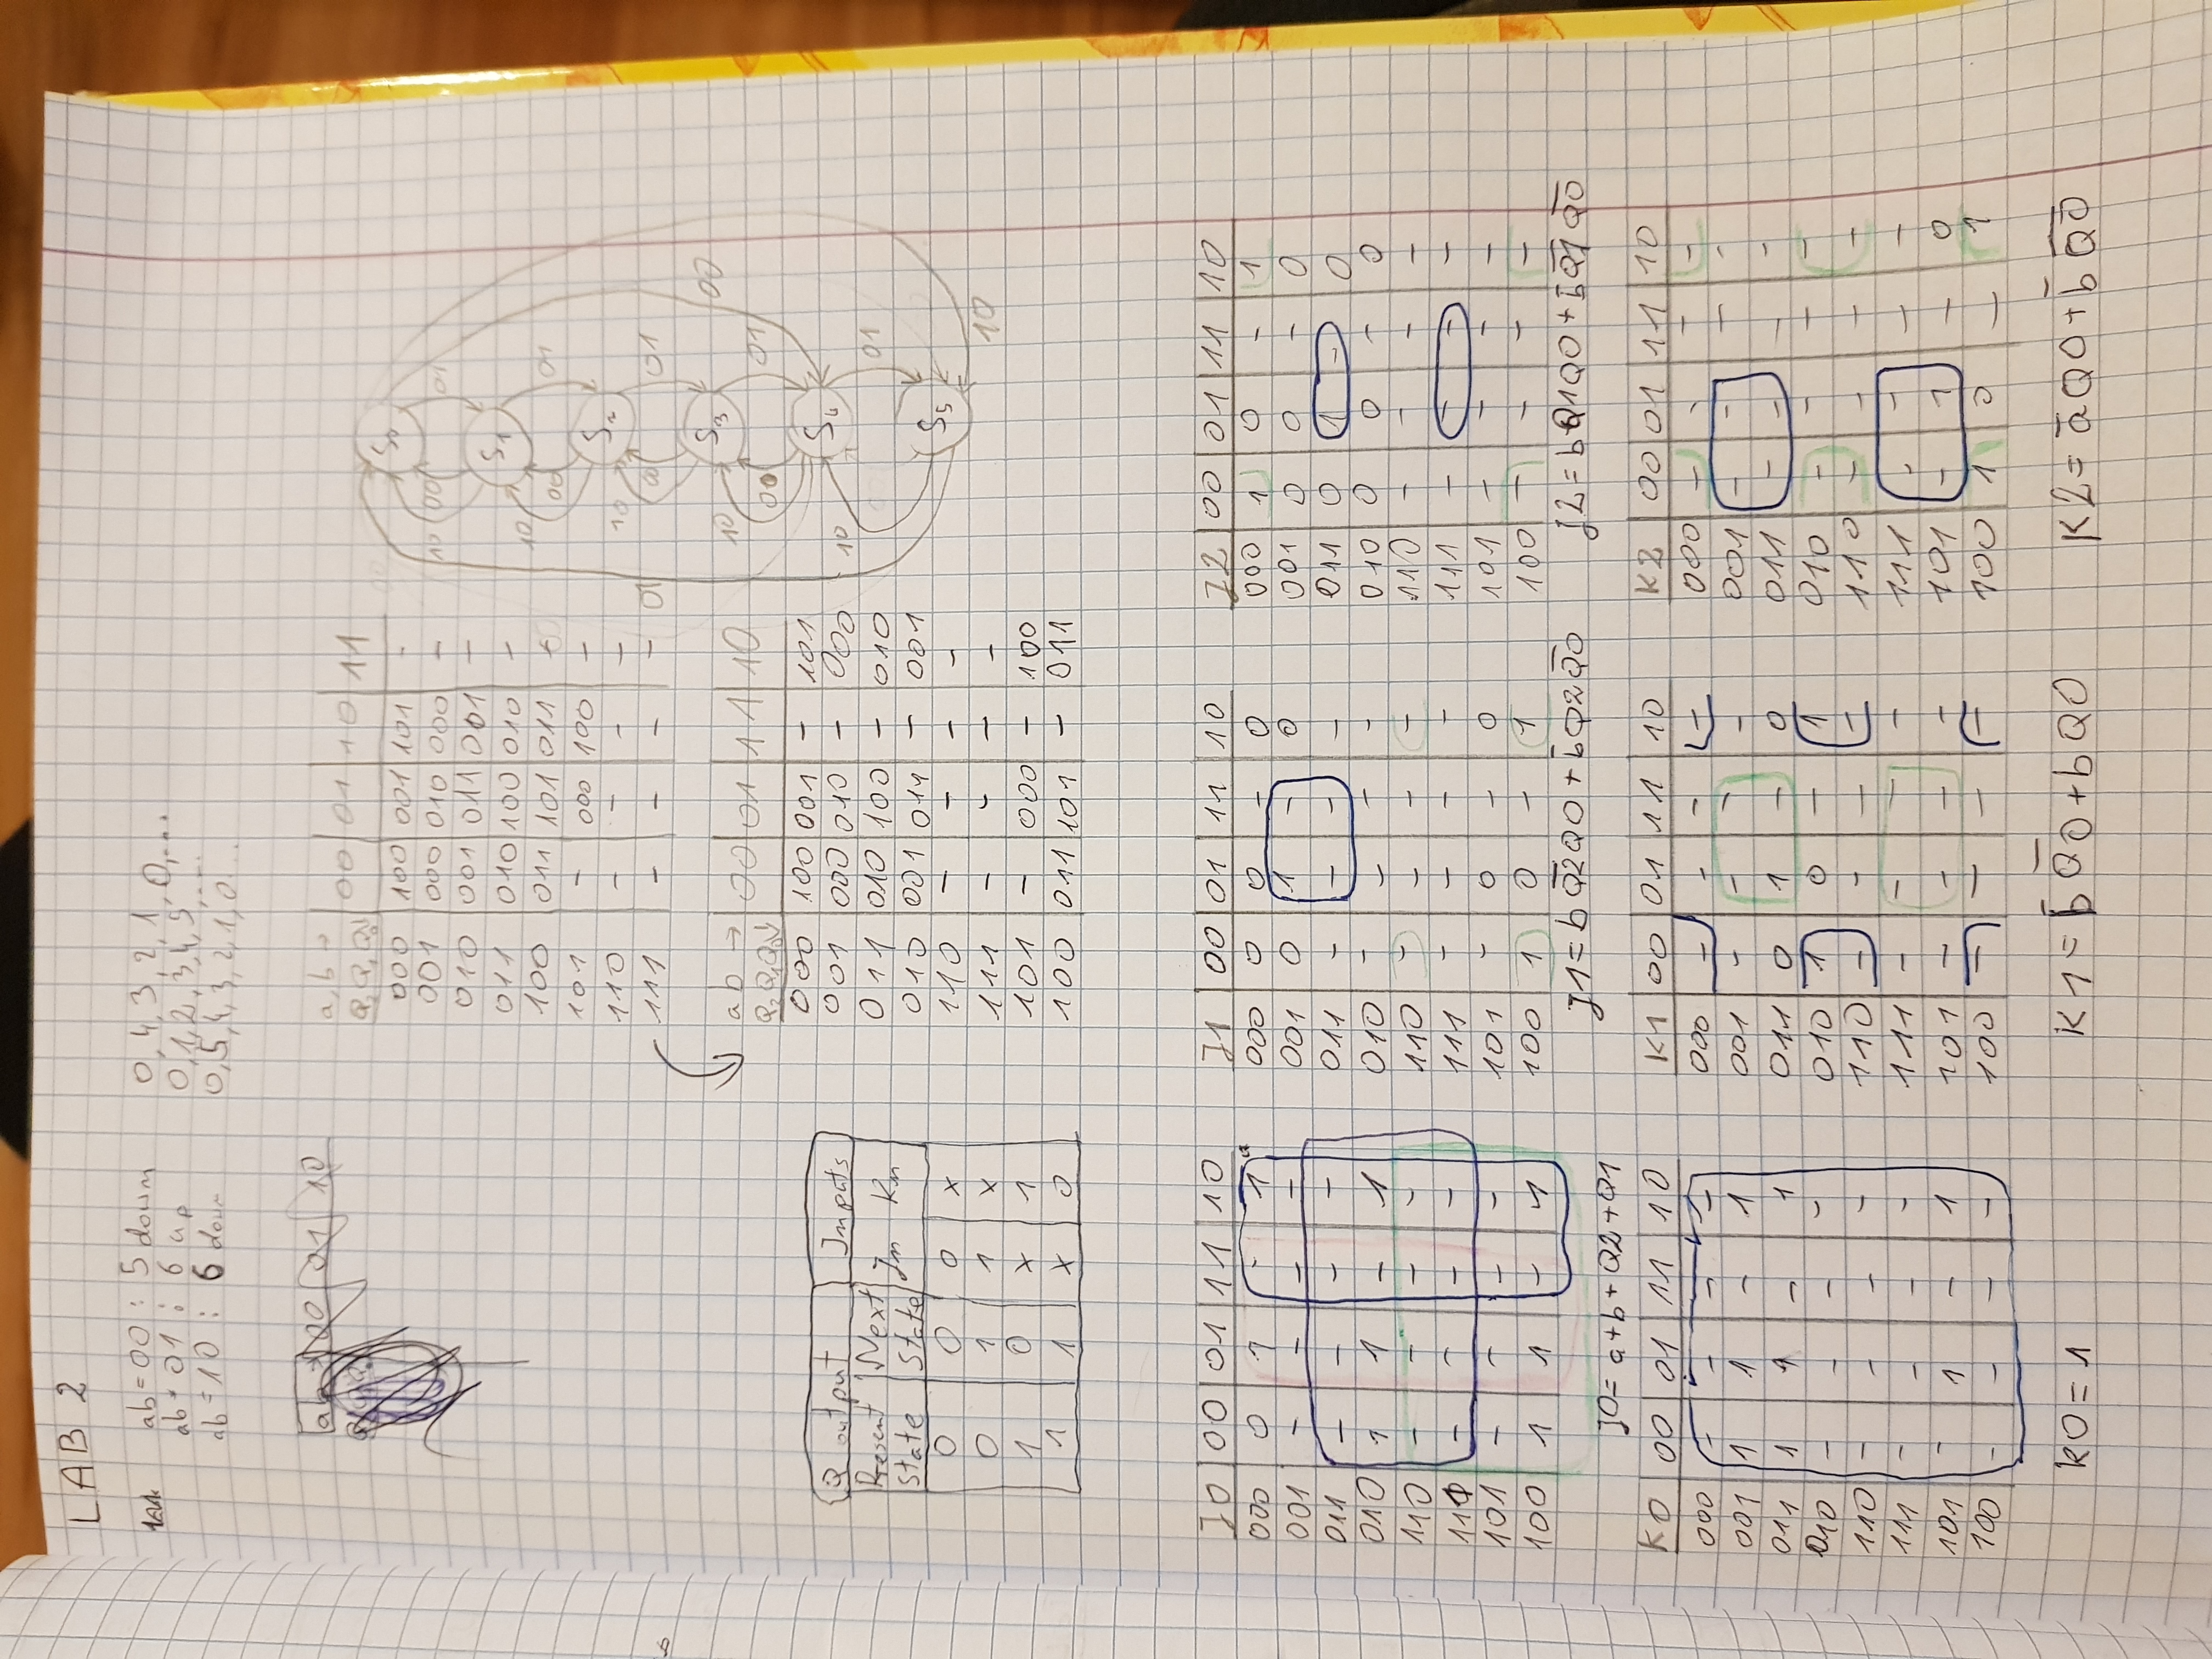 LAB 2
ab=00 : 5 down 0, 4, 3, 2, 1, 0, ...
ab=01 : 6 up 0, 1, 2, 3, 4, 5, ...
ab=10 : 6 down 0, 5, 4, 3, 2, 1, 0 ...
ab 00 01 10
a, b → 00 01 10 11
Q2 Q1 Q0↓
000 100 001 101 -
001 000 010 000 -
010 001 011 001 -
011 010 100 010 -
100 011 101 011 -
101 - 000 100 -
110 - - - -
111 - - - -
S0
10 00 01
S1
10 00 01
S2
10 00 01
01
S3
00
10 00 01
S4
10 01
S5
10
ab → 00 01 11 10
Q2 Q1 Q0↓
000 100 001 - 101
001 000 010 - 000
011 010 100 - 010
010 001 011 - 001
110 - - - -
111 - - - -
101 - 000 - 100
100 011 101 - 011
Q output Inputs
Present state Next state Jn Kn
0 0 0 x
0 1 1 x
1 0 x 1
1 1 x 0
J0 00 01 11 10
000 0 1 - 1
001 - - - -
011 - - - -
010 1 1 - 1
110 - - - -
111 - - - -
101 - - - -
100 1 1 - 1
J0= a+b+Q2+Q1
J1 00 01 11 10
000 0 0 - 0
001 0 1 - 0
011 - - - -
010 - - - -
110 - - - -
111 - - - -
101 - 0 - 0
100 1 0 - 1
J1= b Q̅2̅ Q0 + b̅ Q2 Q̅0̅
J2 00 01 11 10
000 1 0 - 1
001 0 0 - 0
011 0 1 - 0
010 0 0 - 0
110 - - - -
111 - - - -
101 - - - -
100 - - - -
J2= b Q1 Q0 + b̅ Q̅1̅ Q̅0̅
K0 00 01 11 10
000 - - - -
001 1 1 - 1
011 1 1 - 1
010 - - - -
110 - - - -
111 - - - -
101 - 1 - 1
100 - - - -
K0=1
K1 00 01 11 10
000 - - - -
001 - - - -
011 0 1 - 0
010 1 0 - 1
110 - - - -
111 - - - -
101 - - - -
100 - - - -
K1= b̅ Q̅0̅ + b Q0
K2 00 01 11 10
000 - - - -
001 - - - -
011 - - - -
010 - - - -
110 - - - -
111 - - - -
101 - 1 - 0
100 1 0 - 1
K2= a̅ Q0 + b̅ Q̅0̅